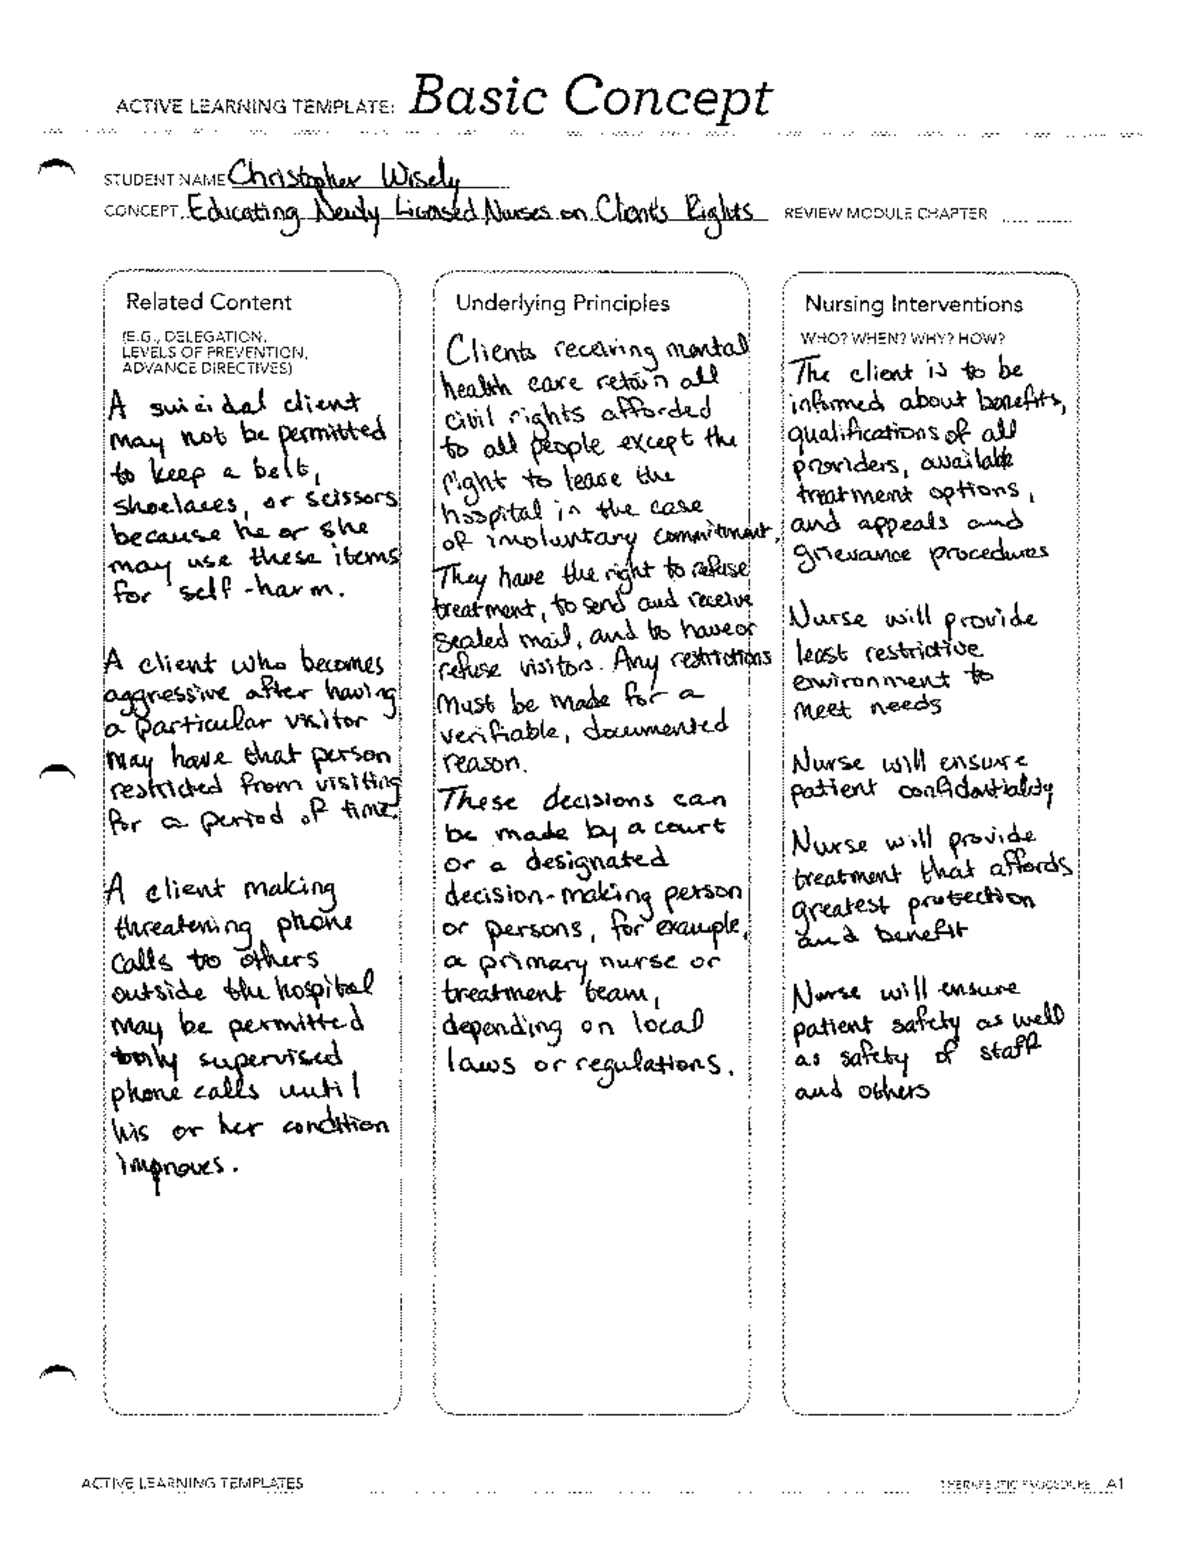 ACTIVE LEARNING TEMPLATE: Basic Concept
STUDENT NAME Christopher Wisely
CONCEPT Educating Newly Licensed Nurses on Client's Rights REVIEW MODULE CHAPTER
Related Content
(E.G., DELEGATION,
LEVELS OF PREVENTION,
ADVANCE DIRECTIVES)
A suicidal client
may not be permitted
to keep a belt,
shoelaces, or scissors
because he or she
may use these items
for self-harm.
A client who becomes
aggressive after having
a particular visitor
may have that person
restricted from visiting
for a period of time.
A client making
threatening phone
calls to others
outside the hospital
may be permitted
only supervised
phone calls until
his or her condition
improves.
Underlying Principles
Clients receiving mental
health care retain all
civil rights afforded
to all people except the
right to leave the
hospital in the case
of involuntary commitment.
They have the right to refuse
treatment, to send and receive
sealed mail, and to have or
refuse visitors. Any restrictions
must be made for a
verifiable, documented
reason.
These decisions can
be made by a court
or a designated
decision-making person
or persons, for example,
a primary nurse or
treatment team,
depending on local
laws or regulations.
Nursing Interventions
WHO? WHEN? WHY? HOW?
The client is to be
informed about benefits,
qualifications of all
providers, available
treatment options,
and appeals and
grievance procedures
Nurse will provide
least restrictive
environment to
meet needs
Nurse will ensure
patient confidentiality
Nurse will provide
treatment that affords
greatest protection
and benefit
Nurse will ensure
patient safety as well
as safety of staff
and others
ACTIVE LEARNING TEMPLATES THERAPEUTIC PROCEDURE A1